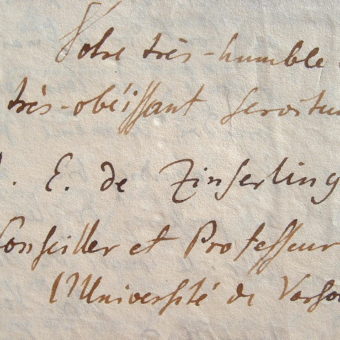 Votre très-humble
très-obéissant serviteu
. E. de Zinserling
Conseiller et Professeur
l'Université de Varso